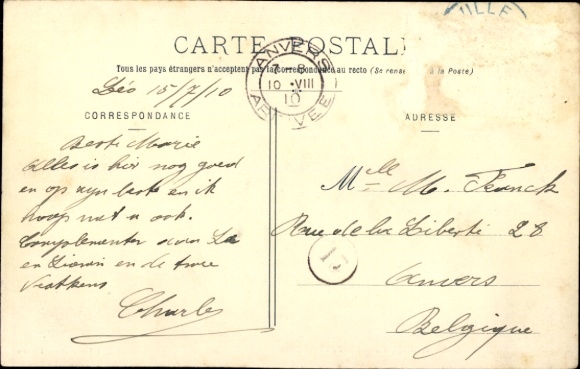 VILLE
CARTE POSTALE
ANVERS
7-8
10 VIII
10
ARRIVEE
Tous les pays étrangers n'acceptent pas la correspondance au recto (Se renseigner à la Poste)
Léo 15/7/10
CORRESPONDANCE
ADRESSE
Beste Marie
Alles is hier nog goed
en op zyn beste en ik
hoop met u ook.
Complimenten aan
en en de twee
Charles
Melle M. Franck
Rue de la Liberté 28
15
Anvers
Belgique